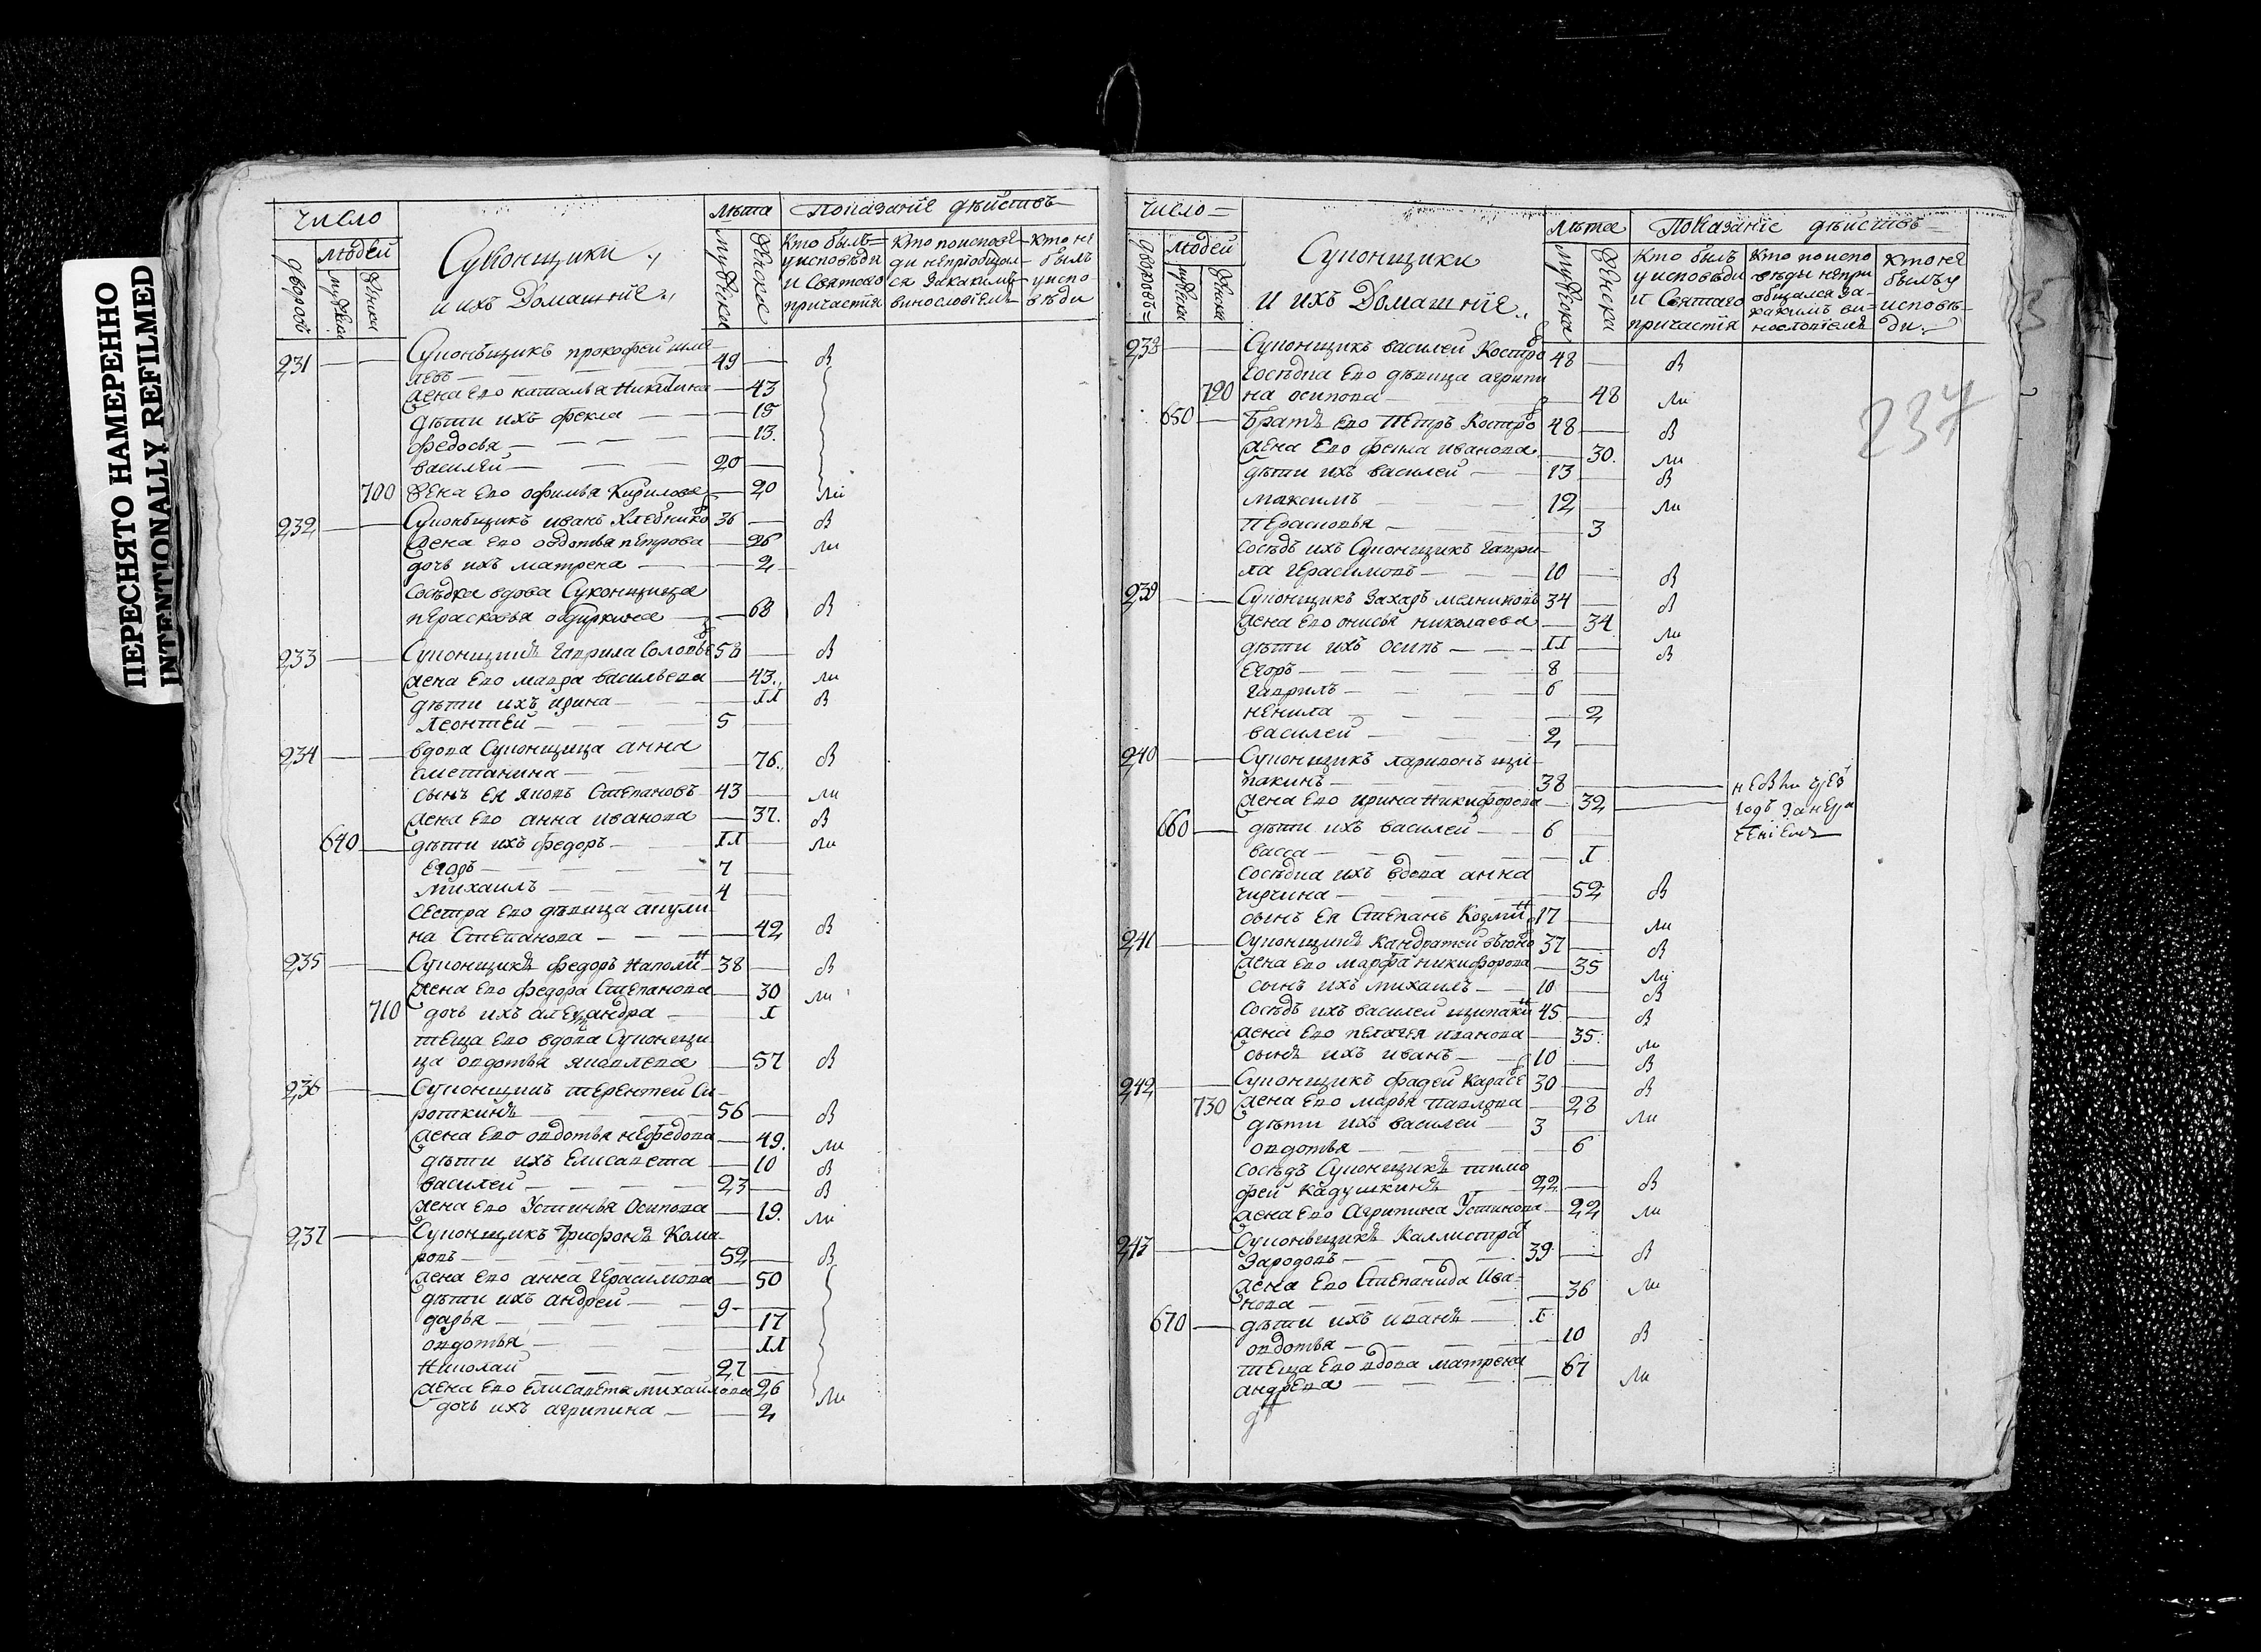 ПЕРЕСНЯТО НАМЕРЕННО
INTENTIONALLY REFILMED
число
людей
дворовъ
мужеска
женска
Суконщики
и ихъ Домашніе
лѣта
мужеска
женска
Показаніе дѣйствъ
Кто былъ у исповѣди и Святаго причастія
Кто по исповѣди не пріобщался за какимъ винословіемъ
Кто не былъ у исповѣди
231 Суконьщикъ прокофей
49 в
жена ево наталья Никитина 43
дѣти ихъ фекла 15
федосья 13
василей 20
700 жена ево офимья Кирилова 20 ли
232 Суконьщикъ иванъ Хлебнико 36 в
жена ево овдотья петрова 26 ли
дочь ихъ матрена 2
сосѣдка вдова Суконщица
перасковья 68 в
233 Суконщикъ гаврила Соловьв 58 в
жена ево мавра васильева 43 ли
дѣти ихъ ирина 11 в
леонтей 5
234 вдова Суконщица анна
сметанина 76 в
сынъ ея яковъ Степановъ 43 ли
жена ево анна иванова 37 в
640 дѣти ихъ федоръ 11 ли
егоръ 7
михаилъ 4
сестра ево дѣвица акули
на Степанова 42 в
235 Суконщикъ федоръ 38 в
жена ево федора Степанова 30 ли
710 дочь ихъ александра 1
теща ево вдова Суконщи
ца овдотья яковлева 57 в
236 Суконщикъ терентей Си
роткинъ 56 в
жена ево овдотья нефедова 49 ли
дѣти ихъ Елисавета 10 в
василей 23 в
жена ево Устинья Осипова 19 ли
237 Суконщикъ Трифонъ Кома
ровъ 52 в
жена ево анна герасимова 50
дѣти ихъ андрей 9
дарья 17
овдотья 11
Николай 27
жена ево Елисавета михайлова 26 ли
дочь ихъ агрипина 2
число
дворовъ
людей
мужеска
женска
Суконщики
и ихъ Домашніе
лѣта
мужеска
женска
Показаніе дѣйствъ
Кто былъ у исповѣди и Святаго причастія
Кто по исповѣди не приобщался за какимъ винословіемъ
Кто не былъ у исповѣди
237
238 Суконщикъ василей Костро 48 в
сосѣдка ево дѣвица агрипи
720 на осипова 48 ли
650 братъ ево Петръ Костро 48 в
жена ево фекла иванова 30 ли
дѣти ихъ василей 13 в
максимъ 12 ли
Перасковья 3
сосѣдъ ихъ Суконщикъ гаври
ла герасимовъ 10 в
239 Суконщикъ Захаръ мелниковъ 34 в
жена ево онисья николаева 34 ли
дѣти ихъ осипъ 11 в
Егоръ 8
гаврилъ 6
ненила 2
василей 2
240 Суконщикъ ларивонъ щи
пакинъ 38
жена ево ирина никифорова 32
годъ
660 дѣти ихъ василей 6
васса 1
сосѣдка ихъ вдова анна
52 в
сынъ ея Степанъ Козмин 17 ли
241 Суконщикъ кандратей 37 в
жена ево марфа никифорова 35 ли
сынъ ихъ михаилъ 10 в
сосѣдъ ихъ василей щипакин 45 в
жена ево пелагея иванова 35 ли
сынъ ихъ иванъ 10 в
242 Суконщикъ фадей Карасе 30 в
730 жена ево марья Павлова 28 ли
дѣти ихъ василей 3
овдотья 6
сосѣдъ Суконщикъ тимо
фей Кадушкинъ 22 в
жена ево Агрипина Устинова 22 ли
243 Суконьщикъ Каллистра
Зародовъ 39 в
жена ево Степанида Ива
нова 36 ли
670 дѣти ихъ иванъ 1
овдотья 10 в
теща ево вдова матрена
андрева 67 ли